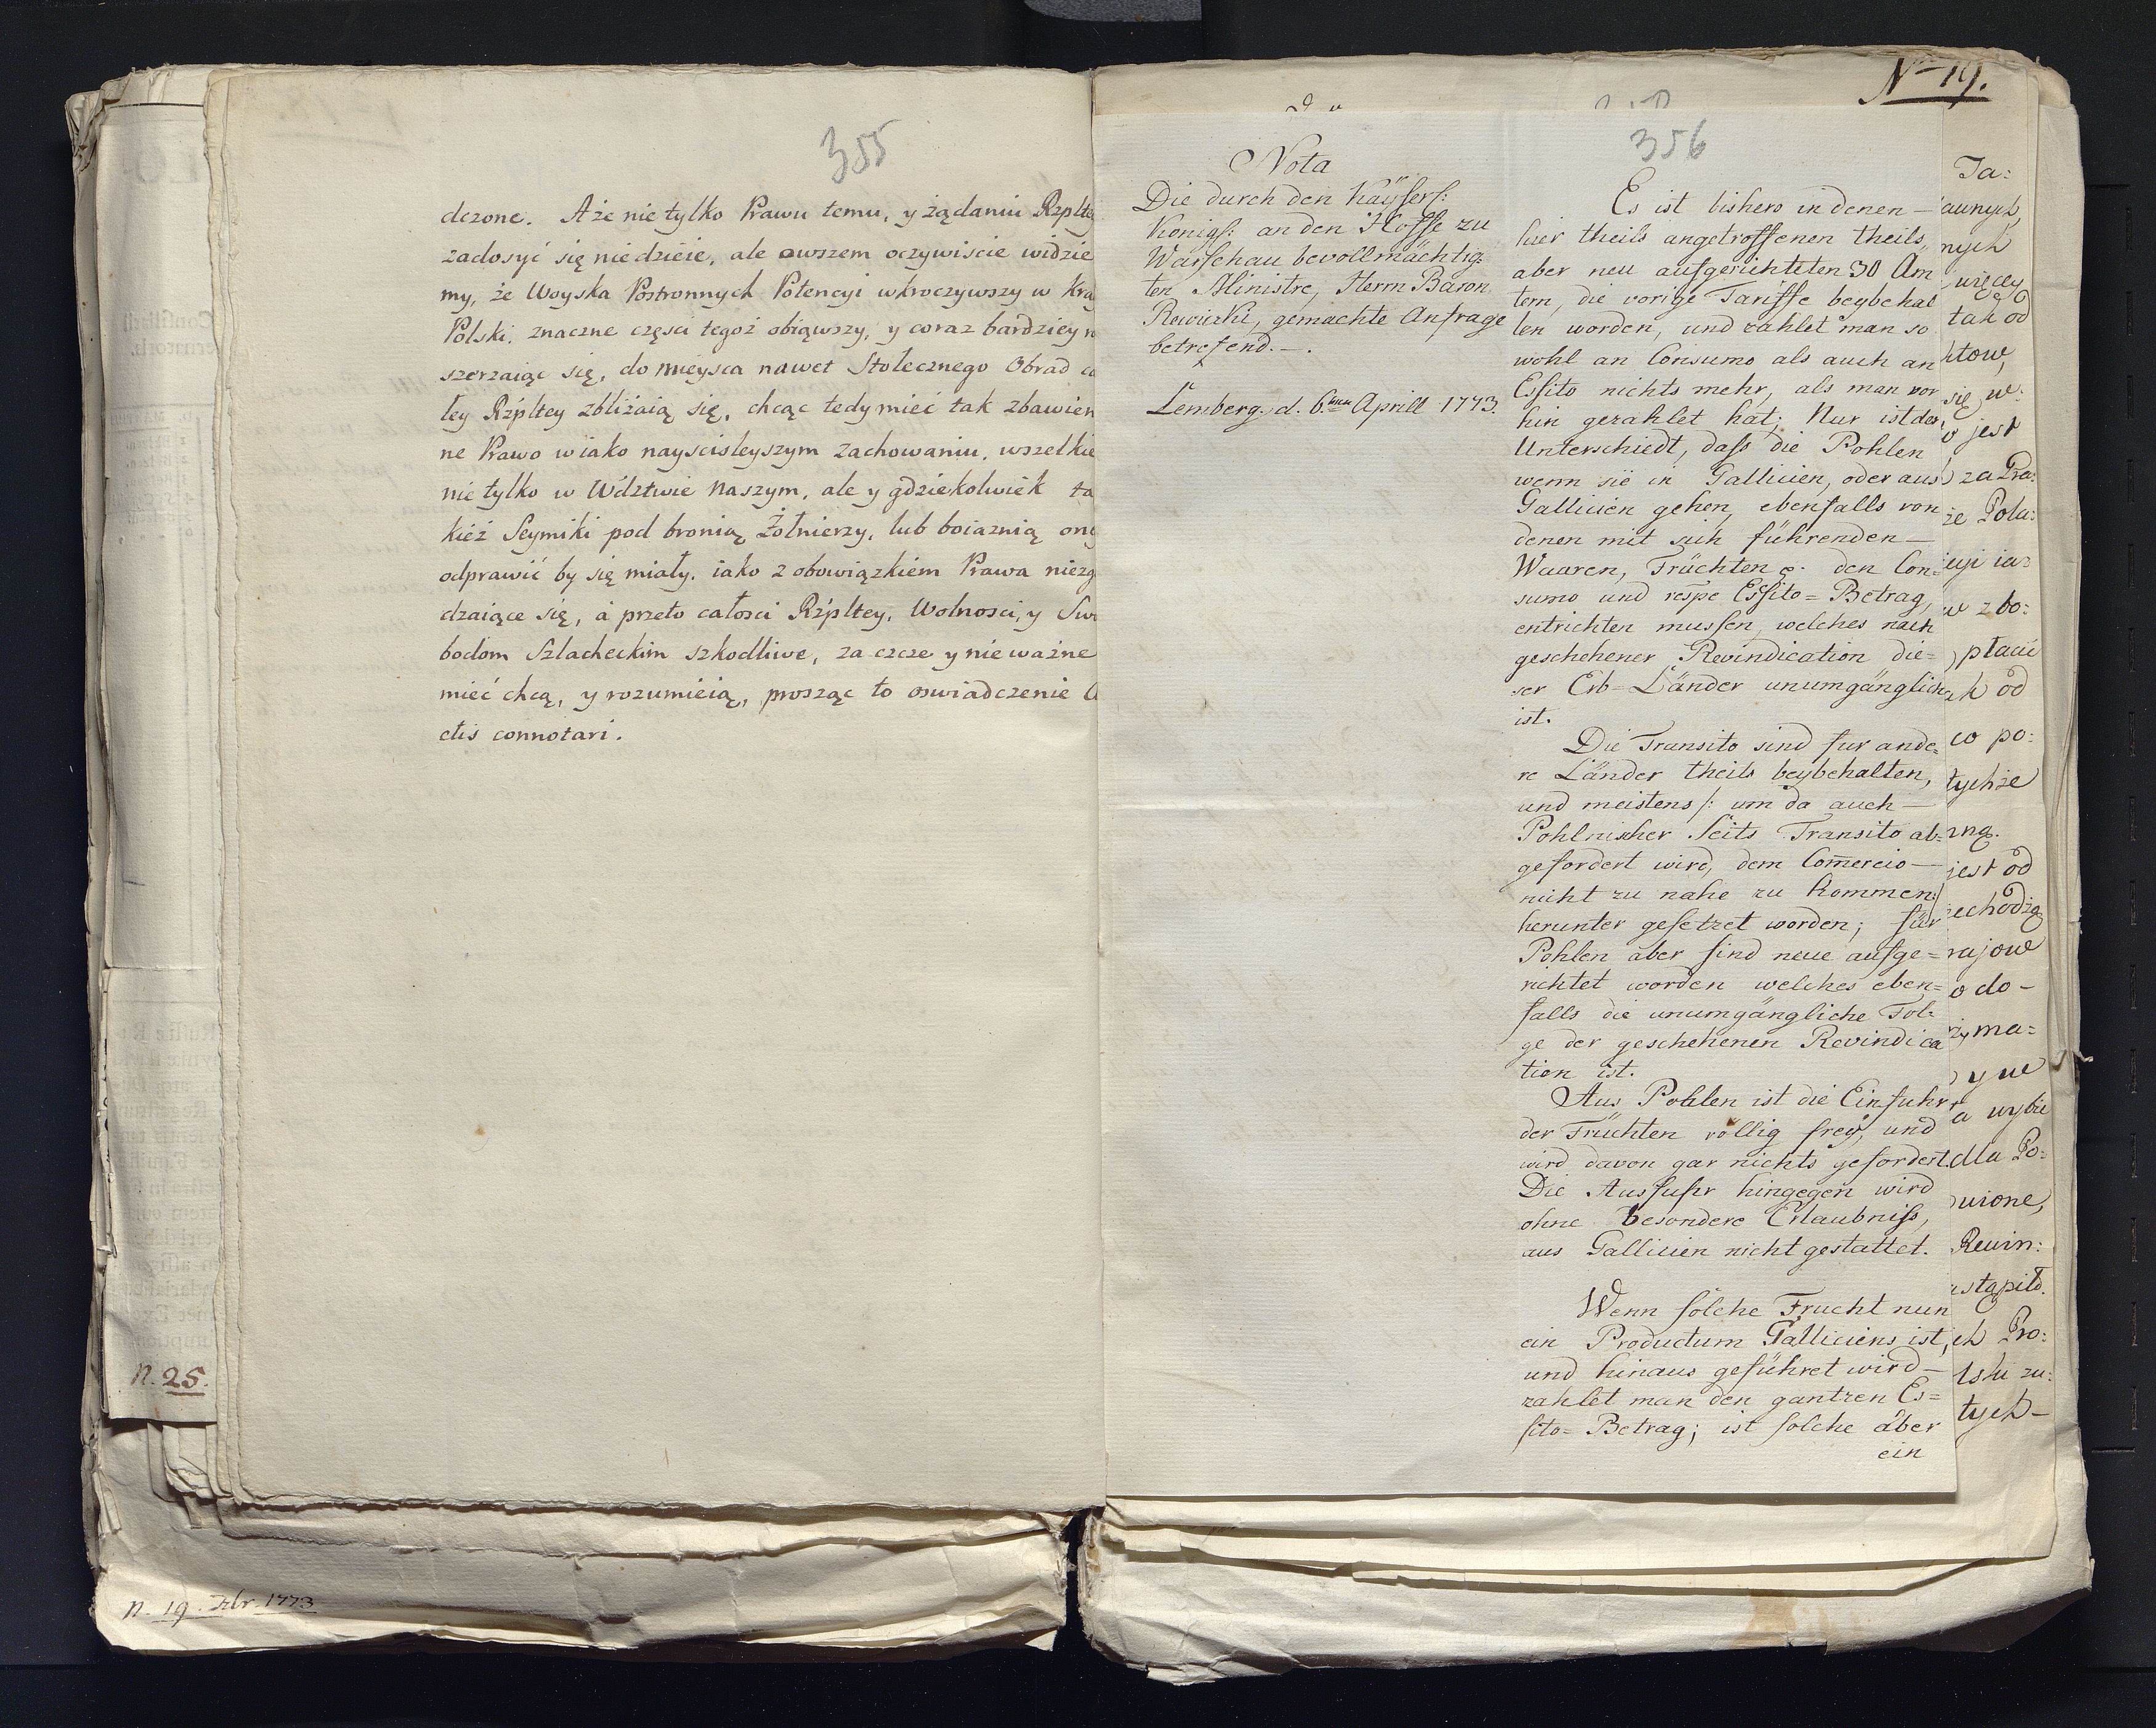 355
dczone. A że nie tylko Prawu temu, y żądaniu Rzpltey
zadosyć się nie dzieie, ale owszem oczywiscie widzie
my, że Woyska Postronnych Potencyi wkroczywszy w Kra
Polski, znaczne części tegoż obiąwszy, y coraz bardziey
szerzaiąc się, do mieysca nawet Stołecznego Obrad
łey Rzpltey zbliżaią się, chcąc tedy mieć tak zbawien
ne Prawo w iako nayscisleyszym zachowaniu, wszelkie
nie tylko w Wdztwie Naszym, ale y gdziekolwiek ta
kież Seymiki pod bronią Żołnierzy, lub boiaznią
odprawić by się miały, iako z obowiązkiem Prawa niezg
dzaiące się, á przeto całosci Rzpltey, Wolnosci, y Sw
bodom Szlacheckim szkodliwe, za czcze y nie ważne
mieć chcą, y rozumieią, prosząc to oswiadczenie A
ctis connotari.
N. 25.
N. 19. Xbr. 1773
Nro 19.
356
Nota
Die durch den Kaÿserl:
Königl: an den Hoffe zu
Warschau bevollmächtig
ten Ministre, Herrn Baron
Rewizki, gemachte Anfrage
betrefend.—.
Lemberg. d. 6ten Aprill 1773.
Es ist bishero in denen —
hier theils angetroffenen theils,
aber neu aufgerichteten 30 Äm
tern, die vorige Tariffe beybehal
ten worden, und zahlet man so
wohl an Consumo als auch an
Essito nichts mehr, als man vor
hin gezahlet hat; Nur ist der
Unterschiedt, daß die Pohlen
wenn sie in Gallicien, oder aus
Gallicien gehen, ebenfalls von
denen mit sich führenden —
Waaren, Früchten den Con=
sumo und respe Essito=Betrag,
entrichten mussen, welches nach
geschehener Revindication die=
ser Erb=Länder unumgänglich
ist.
Die Transito sind fur ande=
re Länder theils beybehalten,
und meistens /: um da auch —
Pohlnischer Seits Transito ab=
gefordert wird, dem Com̄ercio —
nicht zu nahe zu kommen:/
herunter gesetzet worden; für
Pohlen aber sind neue aufge=
richtet worden welches eben=
falls die unumgängliche Fol=
ge der geschehenen Revindica
tion ist.
Aus Pohlen ist die Einfuhr
der Früchten völlig freÿ, und
wird davon gar nichts gefordert.
Die Ausfuhr hingegen wird
ohne besondere Erlaubniß,
aus Gallicien nicht gestattet.
Wenn solche Frucht nun
ein Productum Galliciens ist,
und hinaus geführet wird —
zahlet man den gantzen Es=
sito=Betrag; ist solche aber
ein
Ja:
aunych,
nych
więcey
tak od
ktow,
się w:
jest
za Pra:
że Pola:
w zbo:
płacić
od
co po:
tychże
jest od
rajowe
do —
ma:
y we
a wybie
dla Po:
Rewin:
astąpiło.
ch Pro:
tych —